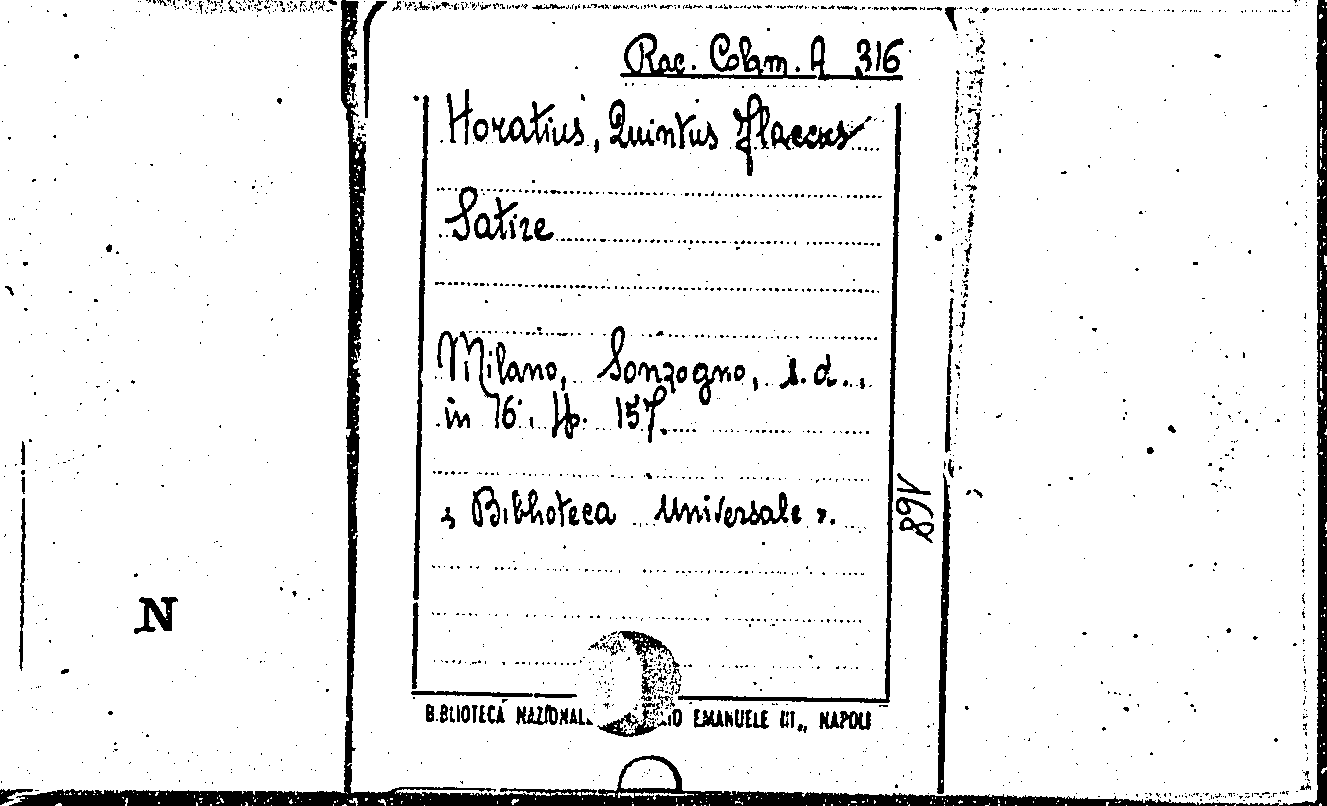 Rac. Colam. A 316
Horatius, Quintus Flaccus
Satire
Milano, Sonzogno, s.d.,
in 16°. pp. 157.
« Biblioteca Universale ».
168
N
BIBLIOTECA NAZIONALE EMANUELE III„ NAPOLI